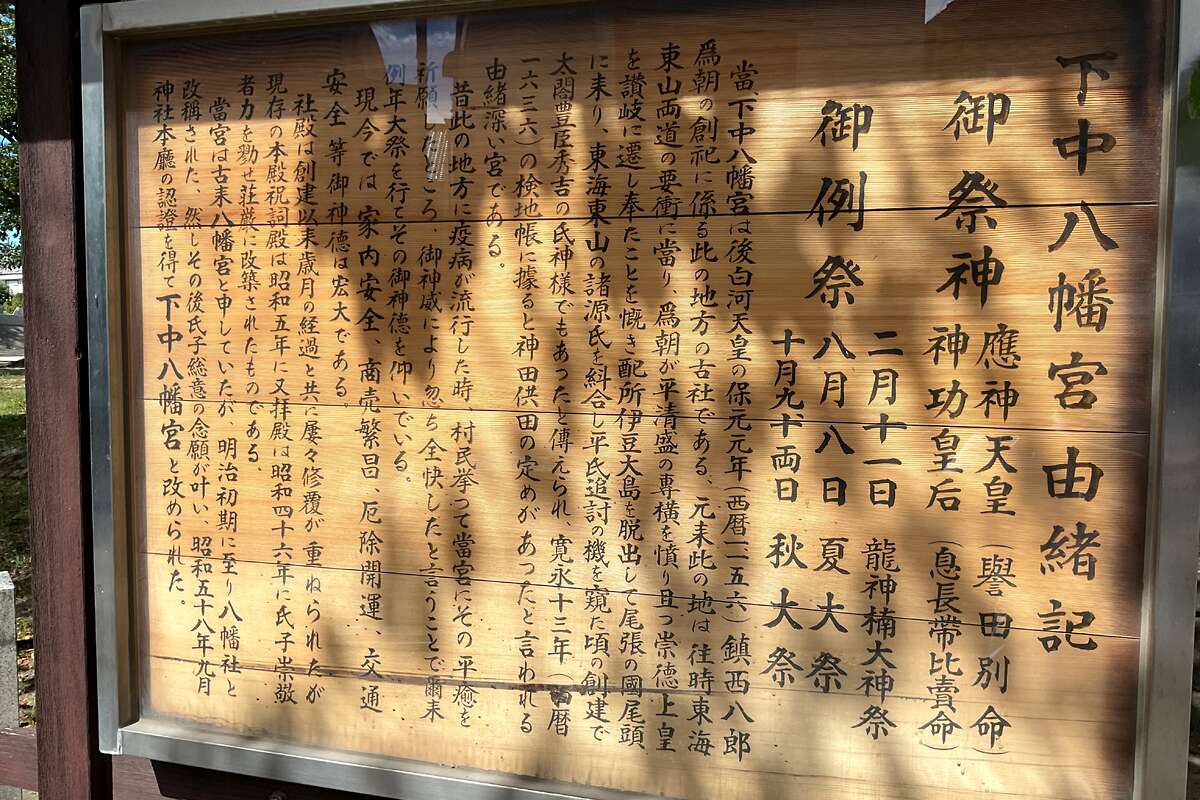 下中八幡宮由緒記
御祭神 應神天皇(譽田別命)
神功皇后(息長帯比賣命)
御例祭 二月十一日 龍神楠大神祭
八月八日 夏大祭
十月九十両日 秋大祭
當、下中八幡宮は後白河天皇の保元元年(西暦一一五六)鎮西八郎
爲朝の創祀に係る此の地方の古社である、元来此の地は往時東海
東山両道の要衝に當り、爲朝が平清盛の専横を憤り且つ崇德上皇
を讃岐に遷し奉たことを慨き配所伊豆大島を脱出して尾張の國尾頭
に来り、東海東山の諸源氏を糾合し平氏追討の機を窺た頃の創建で
太閤豊臣秀吉の氏神様でもあったと傳えられ、寛永十三年(西暦
一六三六)の検地帳に據ると神田供田の定めがあったと言われる
由緒深い宮である。
昔此の地方に疫病が流行した時、村民挙つて當宮にその平癒を
祈願したところ、御神威により忽ち全快したと言うことで爾来
例年大祭を行てその御神德を仰いでいる。
現今では家内安全、商売繁昌、厄除開運、交通
安全等御神德は宏大である。
社殿は創建以来歳月の経過と共に屡々修覆が重ねられたが
現存の本殿祝詞殿は昭和五年に又拝殿は昭和四十六年に氏子崇敬
者力を勠せ荘厳に改築されたものである、
當宮は古来八幡宮と申していたが、明治初期に至り八幡社と
改稱された、然しその後氏子総意の念願が叶い、昭和五十八年九月
神社本廳の認證を得て下中八幡宮と改められた。